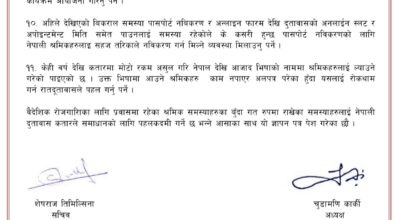 कार्यक्रम आयोजना गरिनु पर्ने ।
१०. अहिले देखिएको बिकराल समस्या पासपोर्ट नविकरण र अनलाइन फारम देखि दुतावासको अनलाईन स्लट र
अपोइन्टमेन्ट मिति समेत पाउनलाई समस्या रहेकोले के कसरी हुन्छ पासपोर्ट नविकरणको लागि
नेपाली श्रमिकहरुलाई सहज तरिकाले नविकरण गर्न मिल्ने व्यवस्था मिलाउनु पर्ने ।
११. केही वर्ष देखि कतारमा मोटो रकम असुल गरि नेपाल देखि आजाद भिषाको नाममा श्रमिकहरुलाई ल्याउने
गरेको पाइएको छ । उक्त भिषामा आउने श्रमिकहरु काम नपाएर अलपत्र परेका हुँदा यसलाई रोकथाम
गर्न राजदुतावासले पहल गर्नु पर्ने ।
बैदेशिक रोजगारिका लागि प्रवासमा रहेका श्रमिक समस्याहरुका बुँदा गत रुपमा राखेका समस्याहरुलाई नेपाली
दुतावास कतारले समाधानको लागि पहलकदमी गर्ने छ भन्ने आसाका साथ यो ज्ञापन पत्र पेश गरेका छौं ।
शेषराज तिमिल्सिना
सचिव
चुडामणि कार्की
अध्यक्ष